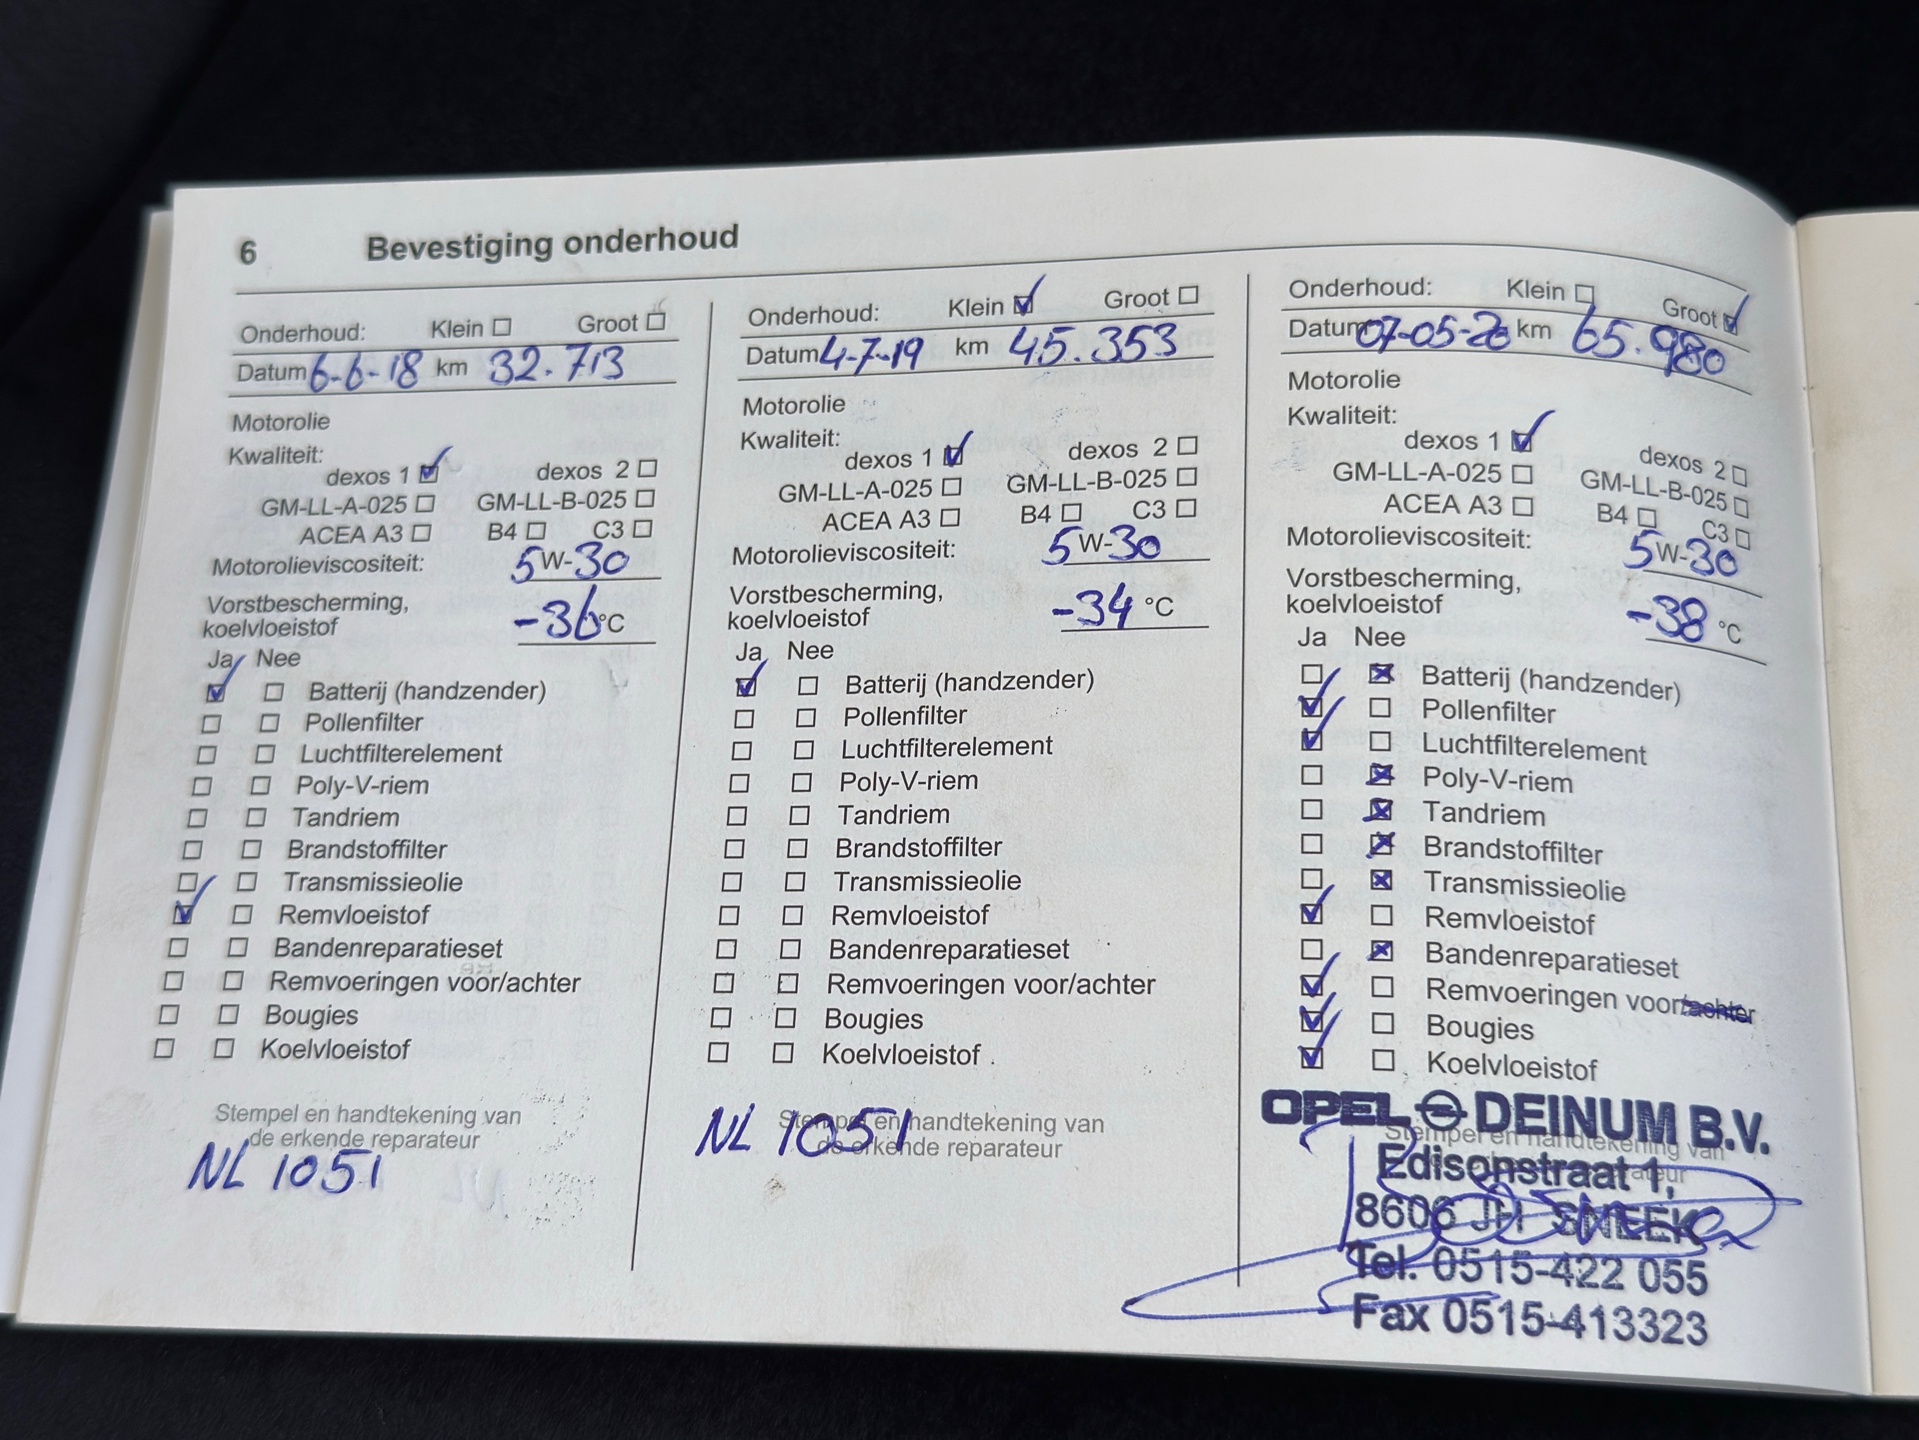 6 Bevestiging onderhoud
Onderhoud: Klein Groot
Datum 6-6-18 km 32.713
Motorolie
Kwaliteit:
dexos 1 dexos 2
GM-LL-A-025 GM-LL-B-025
ACEA A3 B4 C3
Motorolieviscositeit: 5W-30
Vorstbescherming,
koelvloeistof -36 °C
Ja Nee
Batterij (handzender)
Pollenfilter
Luchtfilterelement
Poly-V-riem
Tandriem
Brandstoffilter
Transmissieolie
Remvloeistof
Bandenreparatieset
Remvoeringen voor/achter
Bougies
Koelvloeistof
Stempel en handtekening van
de erkende reparateur
NL 1051
Onderhoud: Klein Groot
Datum 4-7-19 km 45.353
Motorolie
Kwaliteit:
dexos 1 dexos 2
GM-LL-A-025 GM-LL-B-025
ACEA A3 B4 C3
Motorolieviscositeit: 5W-30
Vorstbescherming,
koelvloeistof -34 °C
Ja Nee
Batterij (handzender)
Pollenfilter
Luchtfilterelement
Poly-V-riem
Tandriem
Brandstoffilter
Transmissieolie
Remvloeistof
Bandenreparatieset
Remvoeringen voor/achter
Bougies
Koelvloeistof
Stempel en handtekening van
de erkende reparateur
NL 1051
Onderhoud: Klein Groot
Datum 07-05-20 km 65.980
Motorolie
Kwaliteit:
dexos 1 dexos 2
GM-LL-A-025 GM-LL-B-025
ACEA A3 B4 C3
Motorolieviscositeit: 5W-30
Vorstbescherming,
koelvloeistof -38 °C
Ja Nee
Batterij (handzender)
Pollenfilter
Luchtfilterelement
Poly-V-riem
Tandriem
Brandstoffilter
Transmissieolie
Remvloeistof
Bandenreparatieset
Remvoeringen voor/achter
Bougies
Koelvloeistof
OPEL DEINUM B.V.
Stempel en handtekening van
Edisonstraat 1,
8606 JH SNEEK
Tel. 0515-422 055
Fax 0515-413323